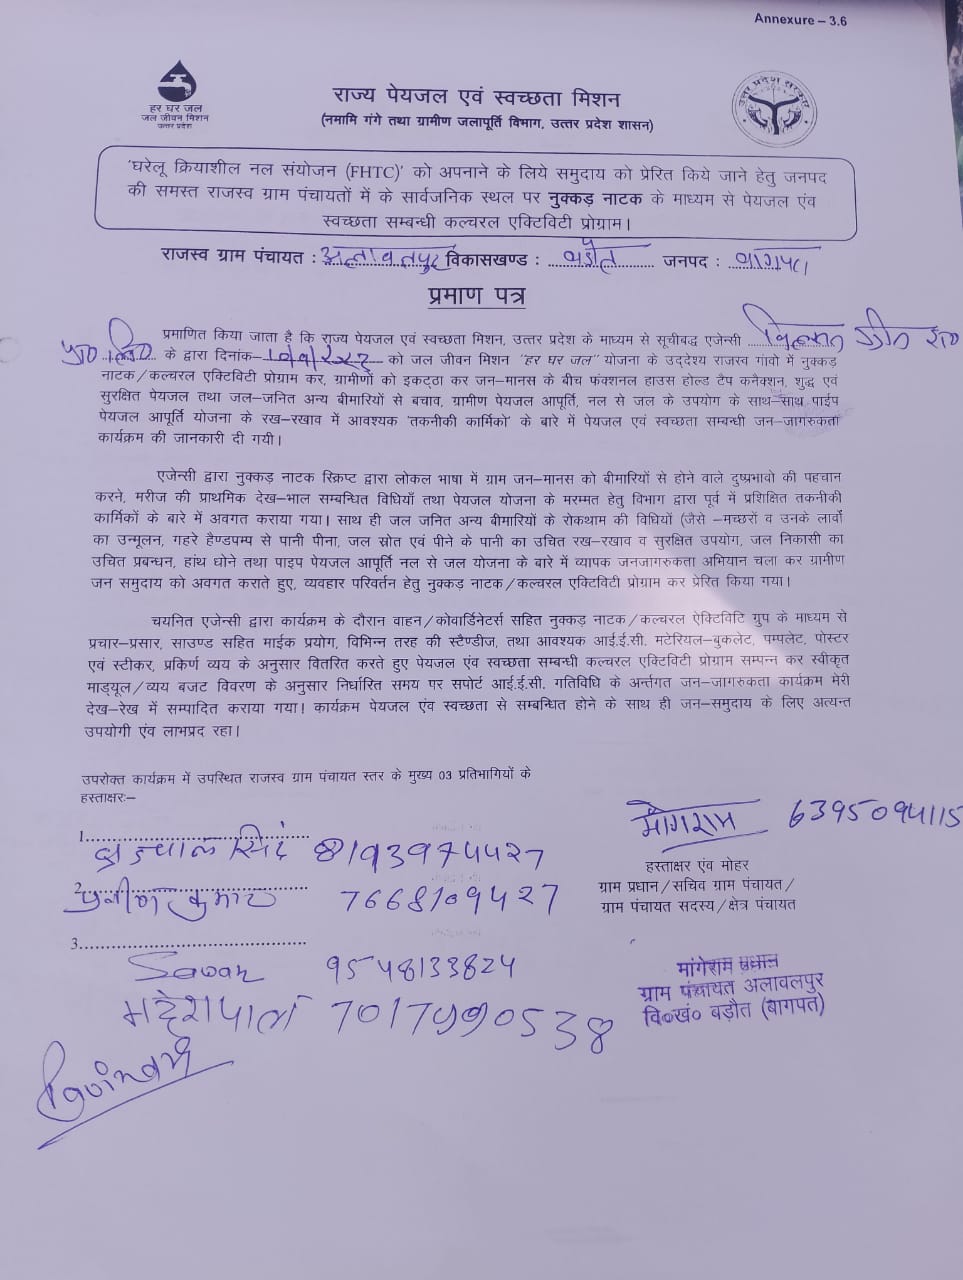 Annexure – 3.6
हर घर जल
जल जीवन मिशन
उत्तर प्रदेश
राज्य पेयजल एवं स्वच्छता मिशन
(नमामि गंगे तथा ग्रामीण जलापूर्ति विभाग, उत्तर प्रदेश शासन)
उत्तर प्रदेश सरकार
'घरेलू क्रियाशील नल संयोजन (FHTC)' को अपनाने के लिये समुदाय को प्रेरित किये जाने हेतु जनपद
की समस्त राजस्व ग्राम पंचायतों में के सार्वजनिक स्थल पर नुक्कड़ नाटक के माध्यम से पेयजल एंव
स्वच्छता सम्बन्धी कल्चरल एक्टिविटी प्रोग्राम।
राजस्व ग्राम पंचायत : अलावलपुर विकासखण्ड : बड़ौत जनपद : बागपत
प्रमाण पत्र
प्रमाणित किया जाता है कि राज्य पेयजल एवं स्वच्छता मिशन, उत्तर प्रदेश के माध्यम से सूचीबद्ध एजेन्सी
प्रा० लि० के द्वारा दिनांक– को जल जीवन मिशन "हर घर जल" योजना के उद्देश्य राजस्व गांवो में नुक्कड़
नाटक/कल्चरल एक्टिविटी प्रोग्राम कर, ग्रामीणों को इकट्ठा कर जन–मानस के बीच फंक्शनल हाउस होल्ड टैप कनैक्शन, शुद्ध एवं
सुरक्षित पेयजल तथा जल–जनित अन्य बीमारियों से बचाव, ग्रामीण पेयजल आपूर्ति, नल से जल के उपयोग के साथ–साथ पाईप
पेयजल आपूर्ति योजना के रख–रखाव में आवश्यक 'तकनीकी कार्मिको' के बारे में पेयजल एवं स्वच्छता सम्बन्धी जन–जागरुकता
कार्यक्रम की जानकारी दी गयी।
एजेन्सी द्वारा नुक्कड़ नाटक स्क्रिप्ट द्वारा लोकल भाषा में ग्राम जन–मानस को बीमारियों से होने वाले दुष्प्रभावो की पहचान
करने, मरीज की प्राथमिक देख–भाल सम्बन्धित विधियाँ तथा पेयजल योजना के मरम्मत हेतु विभाग द्वारा पूर्व में प्रशिक्षित तकनीकी
कार्मिकों के बारे में अवगत कराया गया। साथ ही जल जनित अन्य बीमारियों के रोकथाम की विधियों (जैसे –मच्छरों व उनके लार्वो
का उन्मूलन, गहरे हैण्डपम्प से पानी पीना, जल स्रोत एवं पीने के पानी का उचित रख–रखाव व सुरक्षित उपयोग, जल निकासी का
उचित प्रबन्धन, हांथ धोने तथा पाइप पेयजल आपूर्ति नल से जल योजना के बारे में व्यापक जनजागरुकता अभियान चला कर ग्रामीण
जन समुदाय को अवगत कराते हुए, व्यवहार परिवर्तन हेतु नुक्कड़ नाटक/कल्चरल एक्टिविटी प्रोग्राम कर प्रेरित किया गया।
चयनित एजेन्सी द्वारा कार्यक्रम के दौरान वाहन/कोवार्डिनेटर्स सहित नुक्कड़ नाटक/कल्चरल ऐक्टिविटि ग्रुप के माध्यम से
प्रचार–प्रसार, साउण्ड सहित माईक प्रयोग, विभिन्न तरह की स्टैण्डीज, तथा आवश्यक आई.ई.सी. मटेरियल–बुकलेट, पम्पलेट, पोस्टर
एवं स्टीकर, प्रकिर्ण व्यय के अनुसार वितरित करते हुए पेयजल एंव स्वच्छता सम्बन्धी कल्चरल एक्टिविटी प्रोग्राम सम्पन्न कर स्वीकृत
माड्यूल/व्यय बजट विवरण के अनुसार निर्धारित समय पर सपोर्ट आई.ई.सी. गतिविधि के अर्न्तगत जन–जागरुकता कार्यक्रम मेरी
देख–रेख में सम्पादित कराया गया! कार्यक्रम पेयजल एंव स्वच्छता से सम्बन्धित होने के साथ ही जन–समुदाय के लिए अत्यन्त
उपयोगी एंव लाभप्रद रहा।
उपरोक्त कार्यक्रम में उपस्थित राजस्व ग्राम पंचायत स्तर के मुख्य 03 प्रतिभागियों के
हस्ताक्षरः–
मांगेराम 6395094115
1.
सिंह 8193974427
हस्ताक्षर एंव मोहर
ग्राम प्रधान/सचिव ग्राम पंचायत/
ग्राम पंचायत सदस्य/क्षेत्र पंचायत
2.
कुमार 7668109427
3.
Sawan 9548133824
महेशपाल 7017990538
मांगेराम प्रधान
ग्राम पंचायत अलावलपुर
वि०खं० बड़ौत (बागपत)